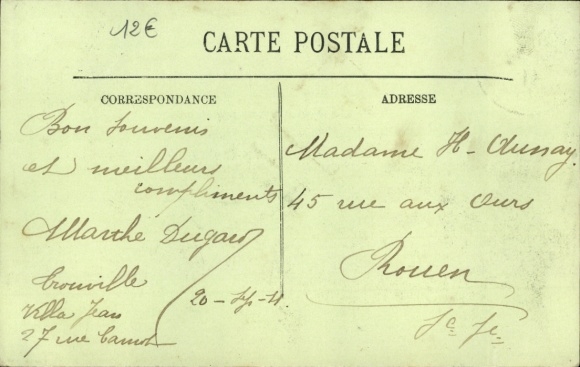 12€
CARTE POSTALE
CORRESPONDANCE
Bon souvenir
et meilleurs
compliments
Marthe Dugard
Trouville
Villa Jean
27 rue Carnot
ADRESSE
Madame H- Aunay.
45 rue aux Ours
Rouen